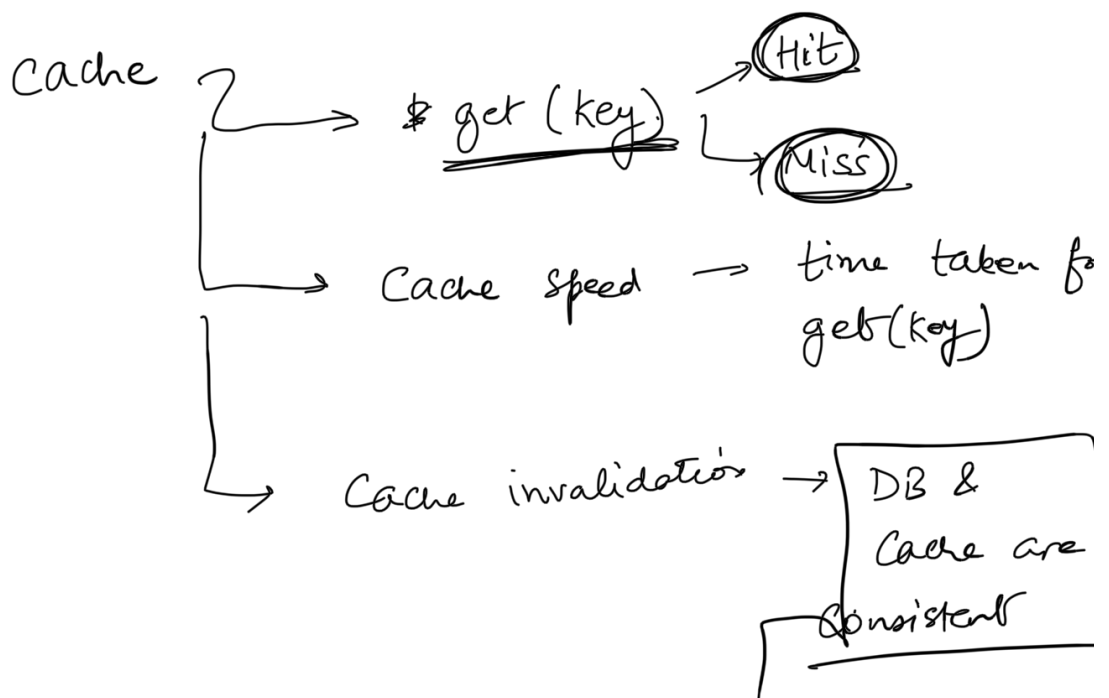 Cache
get (key)
Hit
Miss
Cache speed → time taken
get(key)
Cache invalidation → DB &
Cache are
Consistent